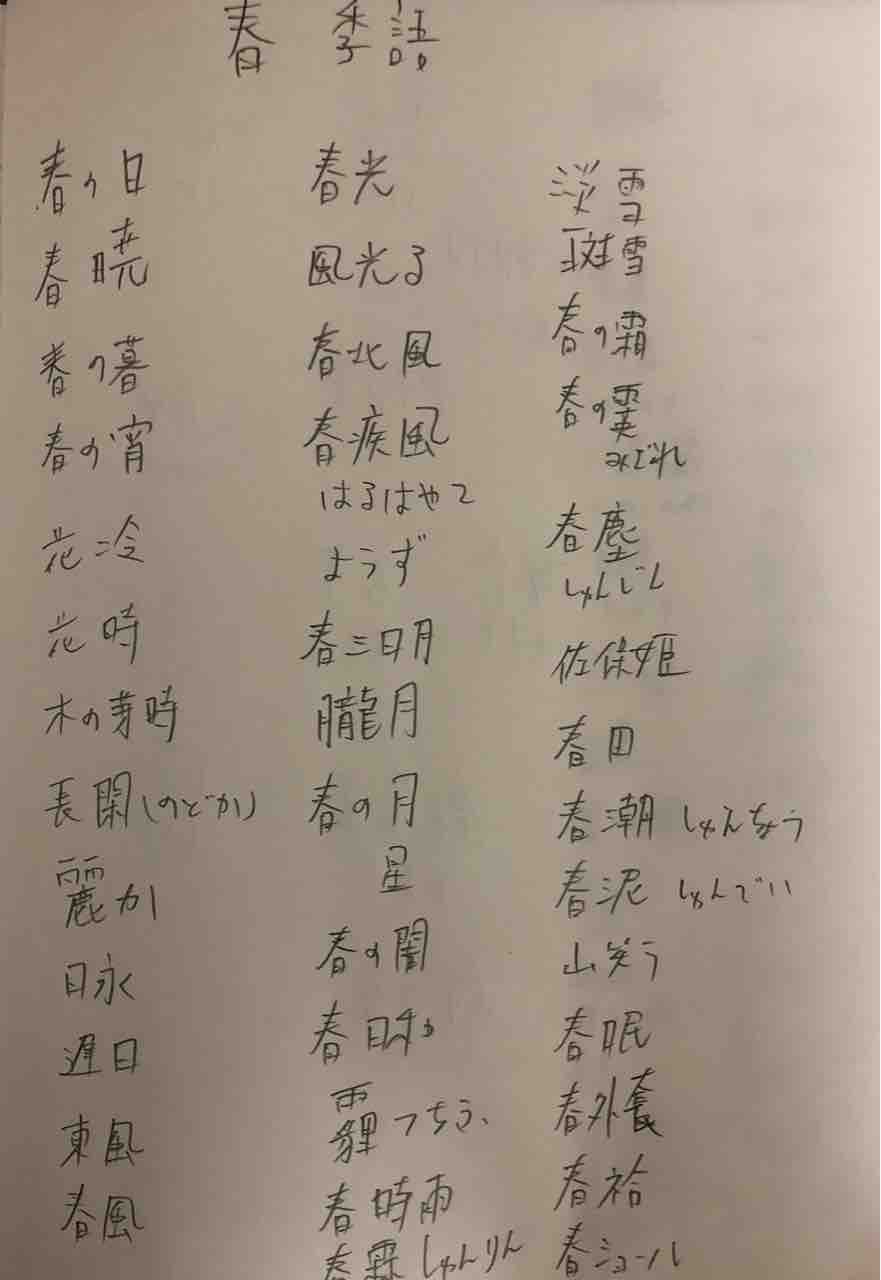 春 季語
春の日
春暁
春の暮
春の宵
花冷
花時
木の芽時
長閑(のどか)
麗か
日永
遅日
東風
春風
春光
風光る
春北風
春疾風
はるはやて
ようず
春三日月
朧月
春の月
星
春の闇
春日
霾 つちふ
春時雨
春霖 しゅんりん
淡雪
斑雪
春の霜
春の霙
みぞれ
春塵
しゅんじん
佐保姫
春田
春潮 しゅんちょう
春泥 しゅんでい
山笑う
春眠
春外套
春袷
春ショール